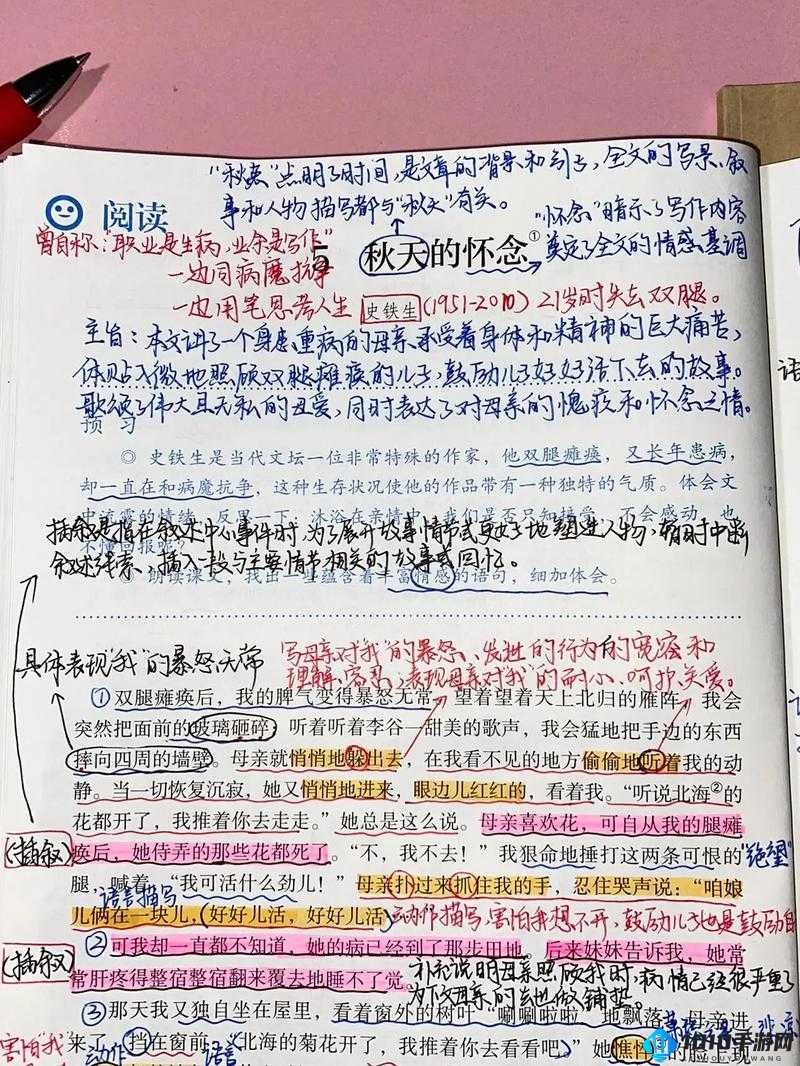 “秋天”点明了时间，是文章的背景和引子，全文的写景、叙
事和人物描写都与“秋天”有关。
阅读
“怀念”暗示了写作内容
曾自称：“职业是生病，业余是写作”
5 秋天的怀念①
奠定了全文的情感基调
一边同病魔抗争
一边用笔思考人生 史铁生 (1951-2010) 21岁时失去双腿。
主旨：本文讲了一个身患重病的母亲承受着身体和精神的巨大痛苦，
体贴入微地照顾双腿瘫痪的儿子，鼓励儿子好好活下去的故事。
歌颂了伟大且无私的母爱，同时表达了对母亲的愧疚和怀念之情。
预 习
◎ 史铁生是当代文坛一位非常特殊的作家，他双腿瘫痪，又长年患病，
却一直在和病魔抗争，这种生存状况使他的作品带有一种独特的气质。体会文
中流露的情绪，反思一下：沐浴在亲情中，我们是否只知接受，不会感动，也
不懂回报呢？
插叙是指在叙述中心事件时，为了展开故事情节或更好地塑造人物，暂时中断
叙述线索，插入一段与主要情节相关的故事或回忆。
朗读课文，找出一些蕴含着丰富情感的语句，细加体会。
具体表现“我”的暴怒无常
写母亲对“我”的暴怒、发泄的行为的宽容和
理解、容忍，表现母亲对“我”的耐心、呵护、关爱。
①双腿瘫痪后，我的脾气变得暴怒无常。望着望着天上北归的雁阵，我会
突然把面前的玻璃砸碎；听着听着李谷一甜美的歌声，我会猛地把手边的东西
摔向四周的墙壁。母亲就悄悄地躲出去，在我看不见的地方偷偷地听着我的动
静。当一切恢复沉寂，她又悄悄地进来，眼边儿红红的，看着我。“听说北海②的
花都开了，我推着你去走走。”她总是这么说。母亲喜欢花，可自从我的腿瘫
(插叙)
痪后，她侍弄的那些花都死了。“不，我不去！”我狠命地捶打这两条可恨的
“绝望”
腿，喊着，“我可活什么劲儿！”母亲扑过来抓住我的手，忍住哭声说：“咱娘
语言描写
儿俩在一块儿，好好儿活，好好儿活
动作描写，害怕我想不开，鼓励儿子也是鼓励自
②可我却一直都不知道，她的病已经到了那步田地。后来妹妹告诉我，她常
(插叙)
常肝疼得整宿整宿翻来覆去地睡不了觉
补充说明母亲照顾我时，病情已经很严重了
为下文母亲的去世做铺垫。
③那天我又独自坐在屋里，看着窗外的树叶“唰唰啦啦”地飘落。母亲进
害怕“我”
来了，挡在窗前：“北海的菊花开了，我推着你去看看吧。”她憔悴的
动作
语言
1010手游网